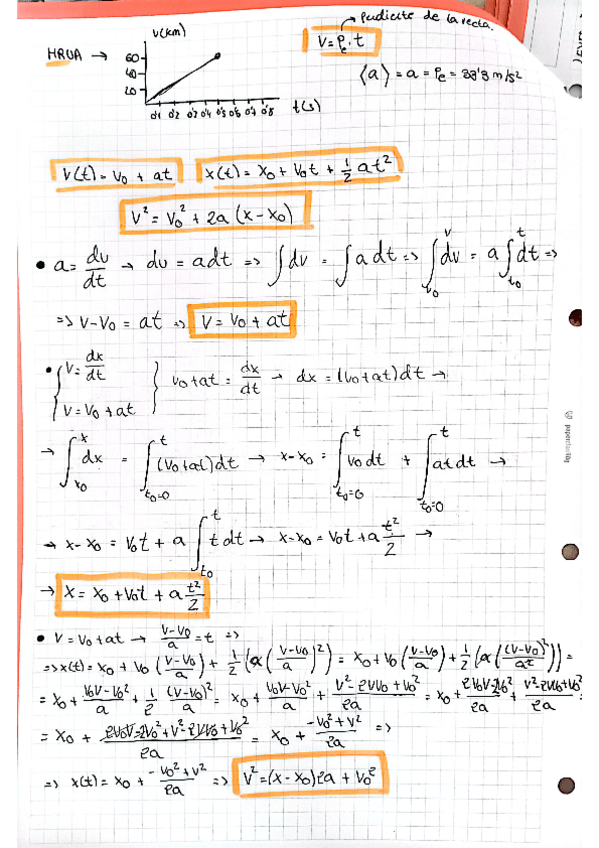 Pendiente de la recta.
V(km)
MRUA →
60
40
20
0'1 0'2 0'3 0'4 0'5 0'6 0'7 0'8 t(s)
V = Pe · t
⟨a⟩ = a = Pe = 33'3 m/s²
V(t) = V₀ + at
x(t) = x₀ + V₀t + 1/2 at²
V² = V₀² + 2a (x - x₀)
• a = dv/dt → dv = adt => ∫dv = ∫a dt => ∫_{v₀}^{v} dv = a ∫_{t₀}^{t} dt =>
=> V - V₀ = at => V = V₀ + at
• { V = dx/dt
{ V = V₀ + at } V₀ + at = dx/dt → dx = (V₀ + at) dt →
→ ∫_{x₀}^{x} dx = ∫_{t₀=0}^{t} (V₀ + at) dt → x - x₀ = ∫_{t₀=0}^{t} V₀ dt + ∫_{t₀=0}^{t} at dt →
→ x - x₀ = V₀t + a ∫_{t₀}^{t} t dt → x - x₀ = V₀t + a t²/2 →
→ x = x₀ + V₀t + a t²/2
• V = V₀ + at → (V - V₀)/a = t =>
=> x(t) = x₀ + V₀ ((V - V₀)/a) + 1/2 (a ((V - V₀)/a)²) = x₀ + V₀ ((V - V₀)/a) + 1/2 (a ((V - V₀)²/a²)) =
= x₀ + (V₀V - V₀²)/a + 1/2 (V - V₀)²/a = x₀ + (V₀V - V₀²)/a + (V² - 2VV₀ + V₀²)/2a = x₀ + (2V₀V - 2V₀²)/2a + (V² - 2VV₀ + V₀²)/2a =
= x₀ + (2V₀V - 2V₀² + V² - 2VV₀ + V₀²)/2a = x₀ + (-V₀² + V²)/2a =>
=> x(t) = x₀ + (-V₀² + V²)/2a => V² = (x - x₀)2a + V₀²